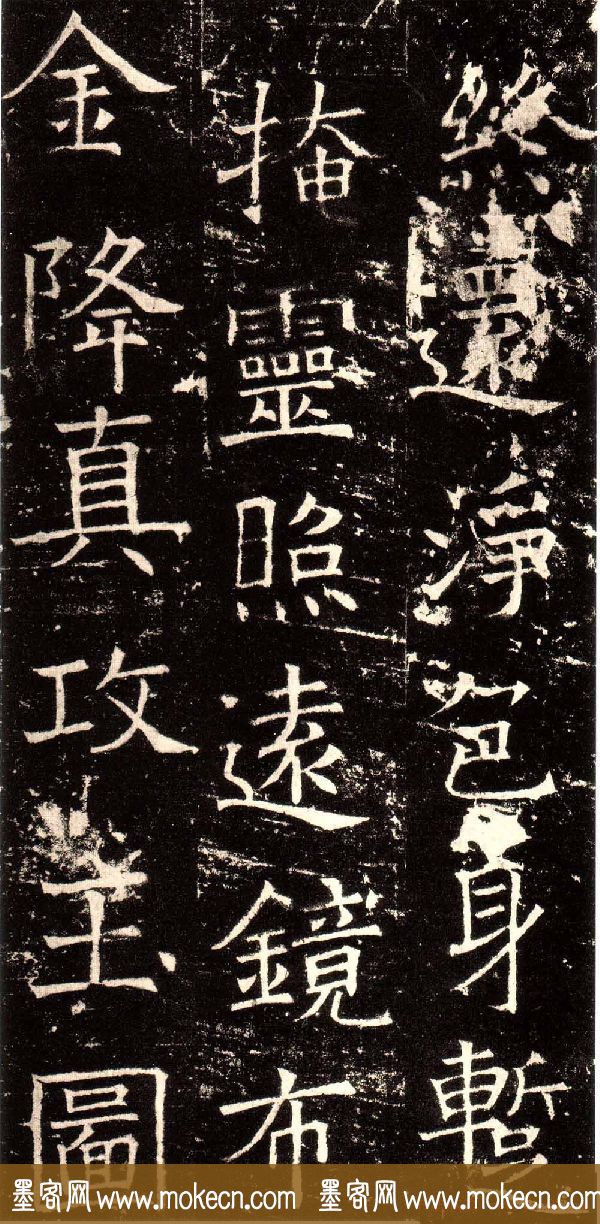 還淨色身暫
掩靈照遠鏡布
金降真攻玉圖
墨客网 www.mokecn.com 墨客网 www.mokecn.com